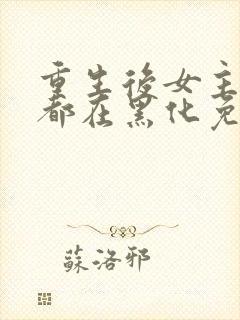 重生後女主
都在黑化免
蘇洛邪